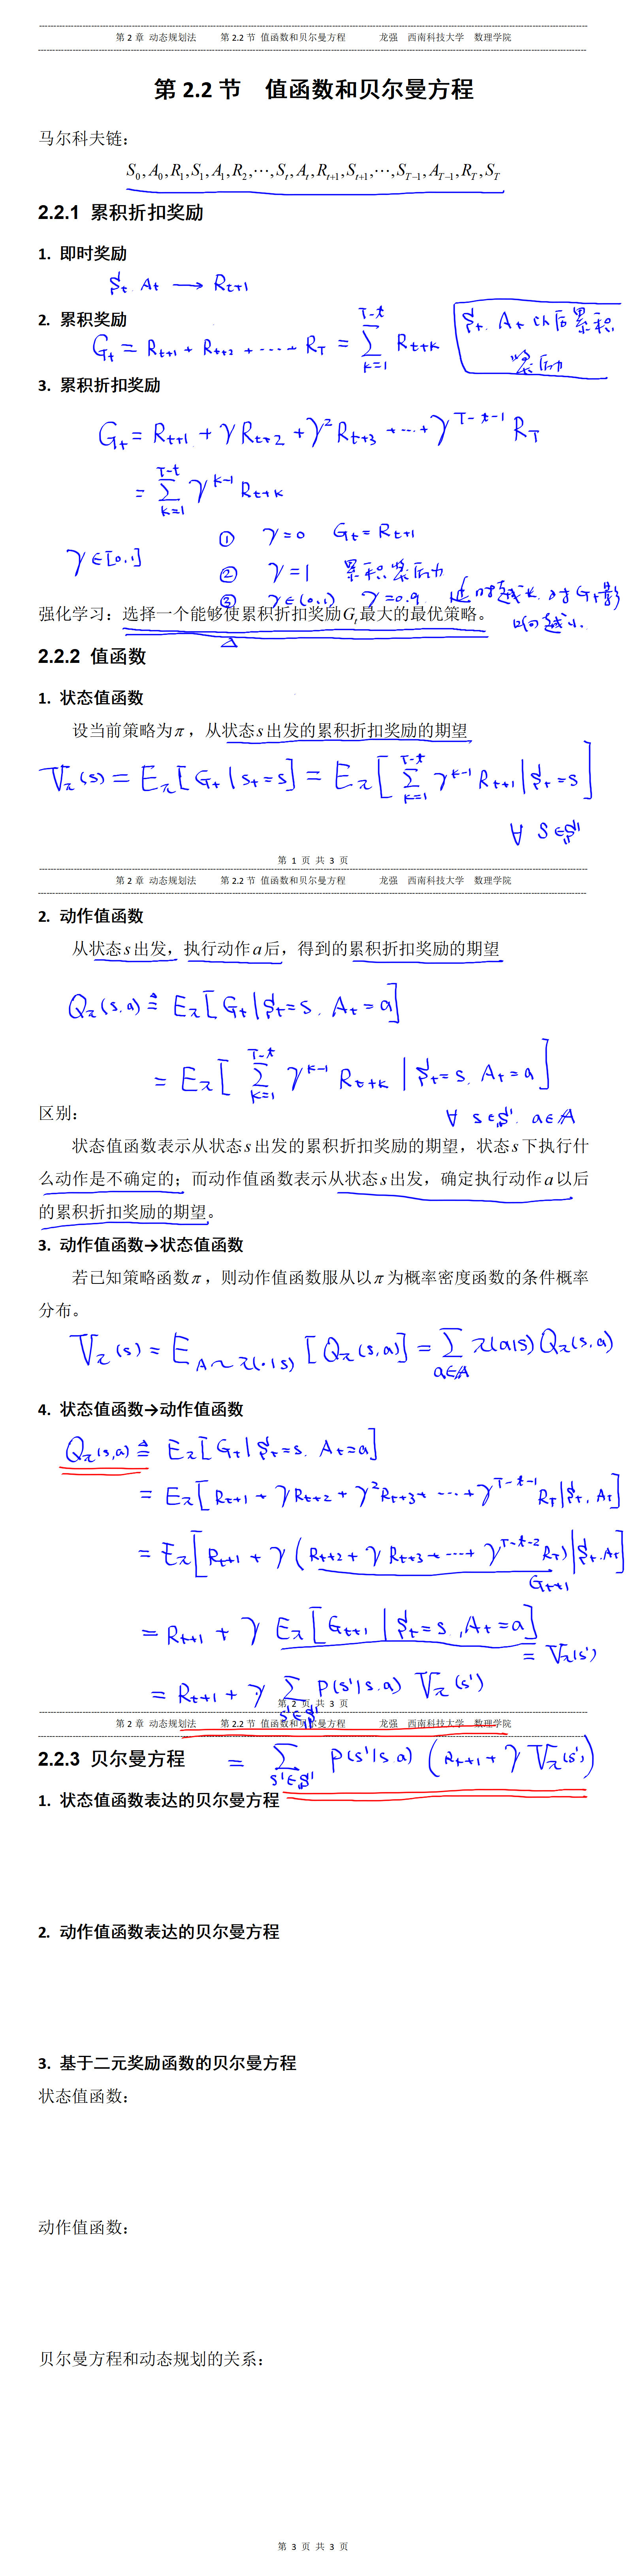 第 2 章 动态规划法 第 2.2 节 值函数和贝尔曼方程 龙强 西南科技大学 数理学院
第 2.2 节 值函数和贝尔曼方程
马尔科夫链：
S₀, A₀, R₁, S₁, A₁, R₂, ⋯, Sₜ, Aₜ, Rₜ₊₁, Sₜ₊₁, ⋯, S_{T−1}, A_{T−1}, R_T, S_T
2.2.1 累积折扣奖励
1. 即时奖励
Sₜ. Aₜ → Rₜ₊₁
2. 累积奖励
Gₜ = Rₜ₊₁ + Rₜ₊₂ + ⋯ + R_T = ∑_{k=1}^{T-t} R_{t+k}
Sₜ. Aₜ 以后累积
奖励
3. 累积折扣奖励
Gₜ = Rₜ₊₁ + γRₜ₊₂ + γ²Rₜ₊₃ + ⋯ + γ^{T-t-1} R_T
= ∑_{k=1}^{T-t} γ^{k-1} R_{t+k}
γ∈[0,1]
① γ=0 Gₜ = Rₜ₊₁
② γ=1 累积奖励
③ γ∈(0,1) γ=0.9 延时越长. 对 Gₜ 影
响越小.
强化学习：选择一个能够使累积折扣奖励Gₜ最大的最优策略。
2.2.2 值函数
1. 状态值函数
设当前策略为π，从状态s出发的累积折扣奖励的期望
V_π(s) = E_π[Gₜ | Sₜ=s] = E_π[∑_{k=1}^{T-t} γ^{k-1} R_{t+1} | Sₜ=s]
∀ s∈S
第 1 页 共 3 页
第 2 章 动态规划法 第 2.2 节 值函数和贝尔曼方程 龙强 西南科技大学 数理学院
2. 动作值函数
从状态s出发，执行动作a后，得到的累积折扣奖励的期望
Q_π(s.a) ≜ E_π[Gₜ | Sₜ=s. Aₜ=a]
= E_π[∑_{k=1}^{T-t} γ^{k-1} R_{t+k} | Sₜ=s. Aₜ=a]
∀ s∈S. a∈A
区别：
状态值函数表示从状态s出发的累积折扣奖励的期望，状态s下执行什
么动作是不确定的；而动作值函数表示从状态s出发，确定执行动作a以后
的累积折扣奖励的期望。
3. 动作值函数→状态值函数
若已知策略函数π，则动作值函数服从以π为概率密度函数的条件概率
分布。
V_π(s) = E_{A~π(·|s)} [Q_π(s,a)] = ∑_{a∈A} π(a|s) Q_π(s,a)
4. 状态值函数→动作值函数
Q_π(s,a) ≜ E_π[Gₜ | Sₜ=s. Aₜ=a]
= E_π[Rₜ₊₁ + γRₜ₊₂ + γ²Rₜ₊₃ + ⋯ + γ^{T-t-1} R_T | Sₜ, Aₜ]
= E_π[Rₜ₊₁ + γ(Rₜ₊₂ + γRₜ₊₃ + ⋯ + γ^{T-t-2} R_T) | Sₜ. Aₜ]
Gₜ₊₁
= Rₜ₊₁ + γ E_π[Gₜ₊₁ | Sₜ=s., Aₜ=a]
= V_π(s')
= Rₜ₊₁ + γ ∑_{s'∈S} P(s'|s.a) V_π(s')
第 2 页 共 3 页
第 2 章 动态规划法 第 2.2 节 值函数和贝尔曼方程 龙强 西南科技大学 数理学院
2.2.3 贝尔曼方程
= ∑_{s'∈S} P(s'|s.a) (Rₜ₊₁ + γ V_π(s'))
1. 状态值函数表达的贝尔曼方程
2. 动作值函数表达的贝尔曼方程
3. 基于二元奖励函数的贝尔曼方程
状态值函数：
动作值函数：
贝尔曼方程和动态规划的关系：
第 3 页 共 3 页